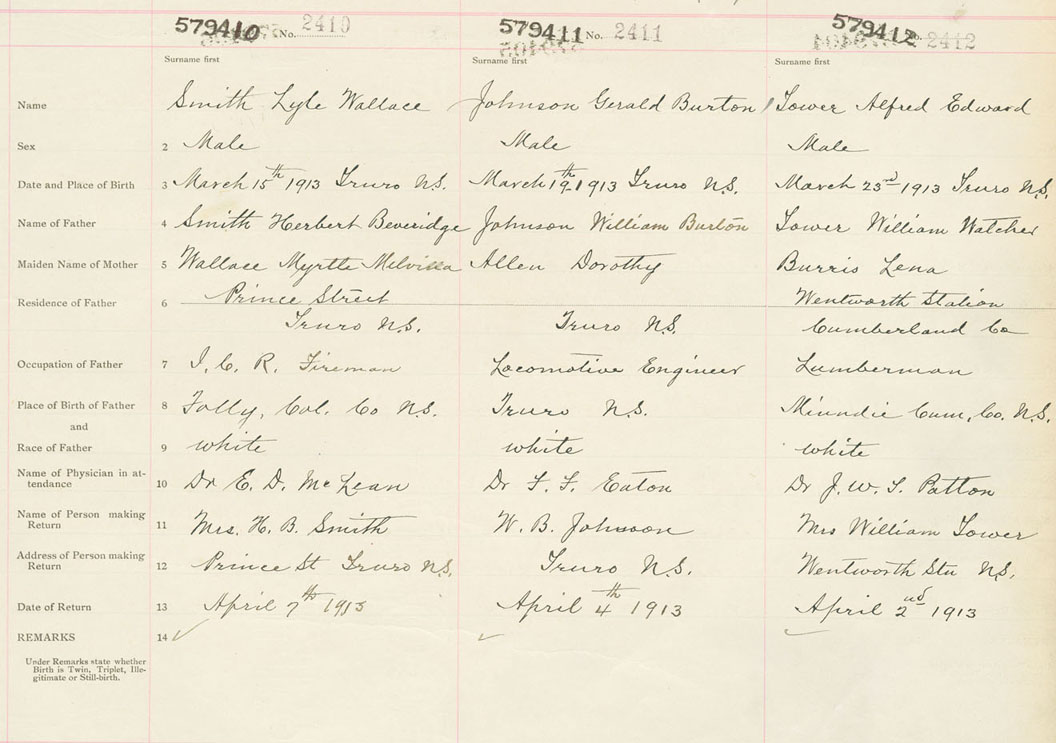 579410 No. 2410 579411 No. 2411 579412 No. 2412
Surname first Surname first Surname first
Name Smith Lyle Wallace Johnson Gerald Burton Tower Alfred Edward
Sex 2 Male Male Male
Date and Place of Birth 3 March 15th 1913 Truro N.S. March 19th 1913 Truro N.S. March 23rd 1913 Truro N.S.
Name of Father 4 Smith Herbert Beveridge Johnson William Burton Tower William Watcher
Maiden Name of Mother 5 Wallace Myrtle Melvilla Allen Dorothy Burris Lena
Residence of Father 6 Prince Street Wentworth Station
Truro N.S. Truro N.S. Cumberland Co
Occupation of Father 7 I. C. R. Fireman Locomotive Engineer Lumberman
Place of Birth of Father 8 Folly, Col. Co N.S. Truro N.S. Cum, Co. N.S.
and
Race of Father 9 white white white
Name of Physician in at-
tendance 10 Dr E. D. McLean Dr F. F. Eaton Dr J. W. T. Patton
Name of Person making
Return 11 Mrs. H. B. Smith W. B. Johnson Mrs William Tower
Address of Person making
Return 12 Prince St Truro N.S. Truro N.S. Wentworth Stn N.S.
Date of Return 13 April 7th 1913 April 4th 1913 April 2nd 1913
REMARKS 14
Under Remarks state whether
Birth is Twin, Triplet, Ille-
gitimate or Still-birth.